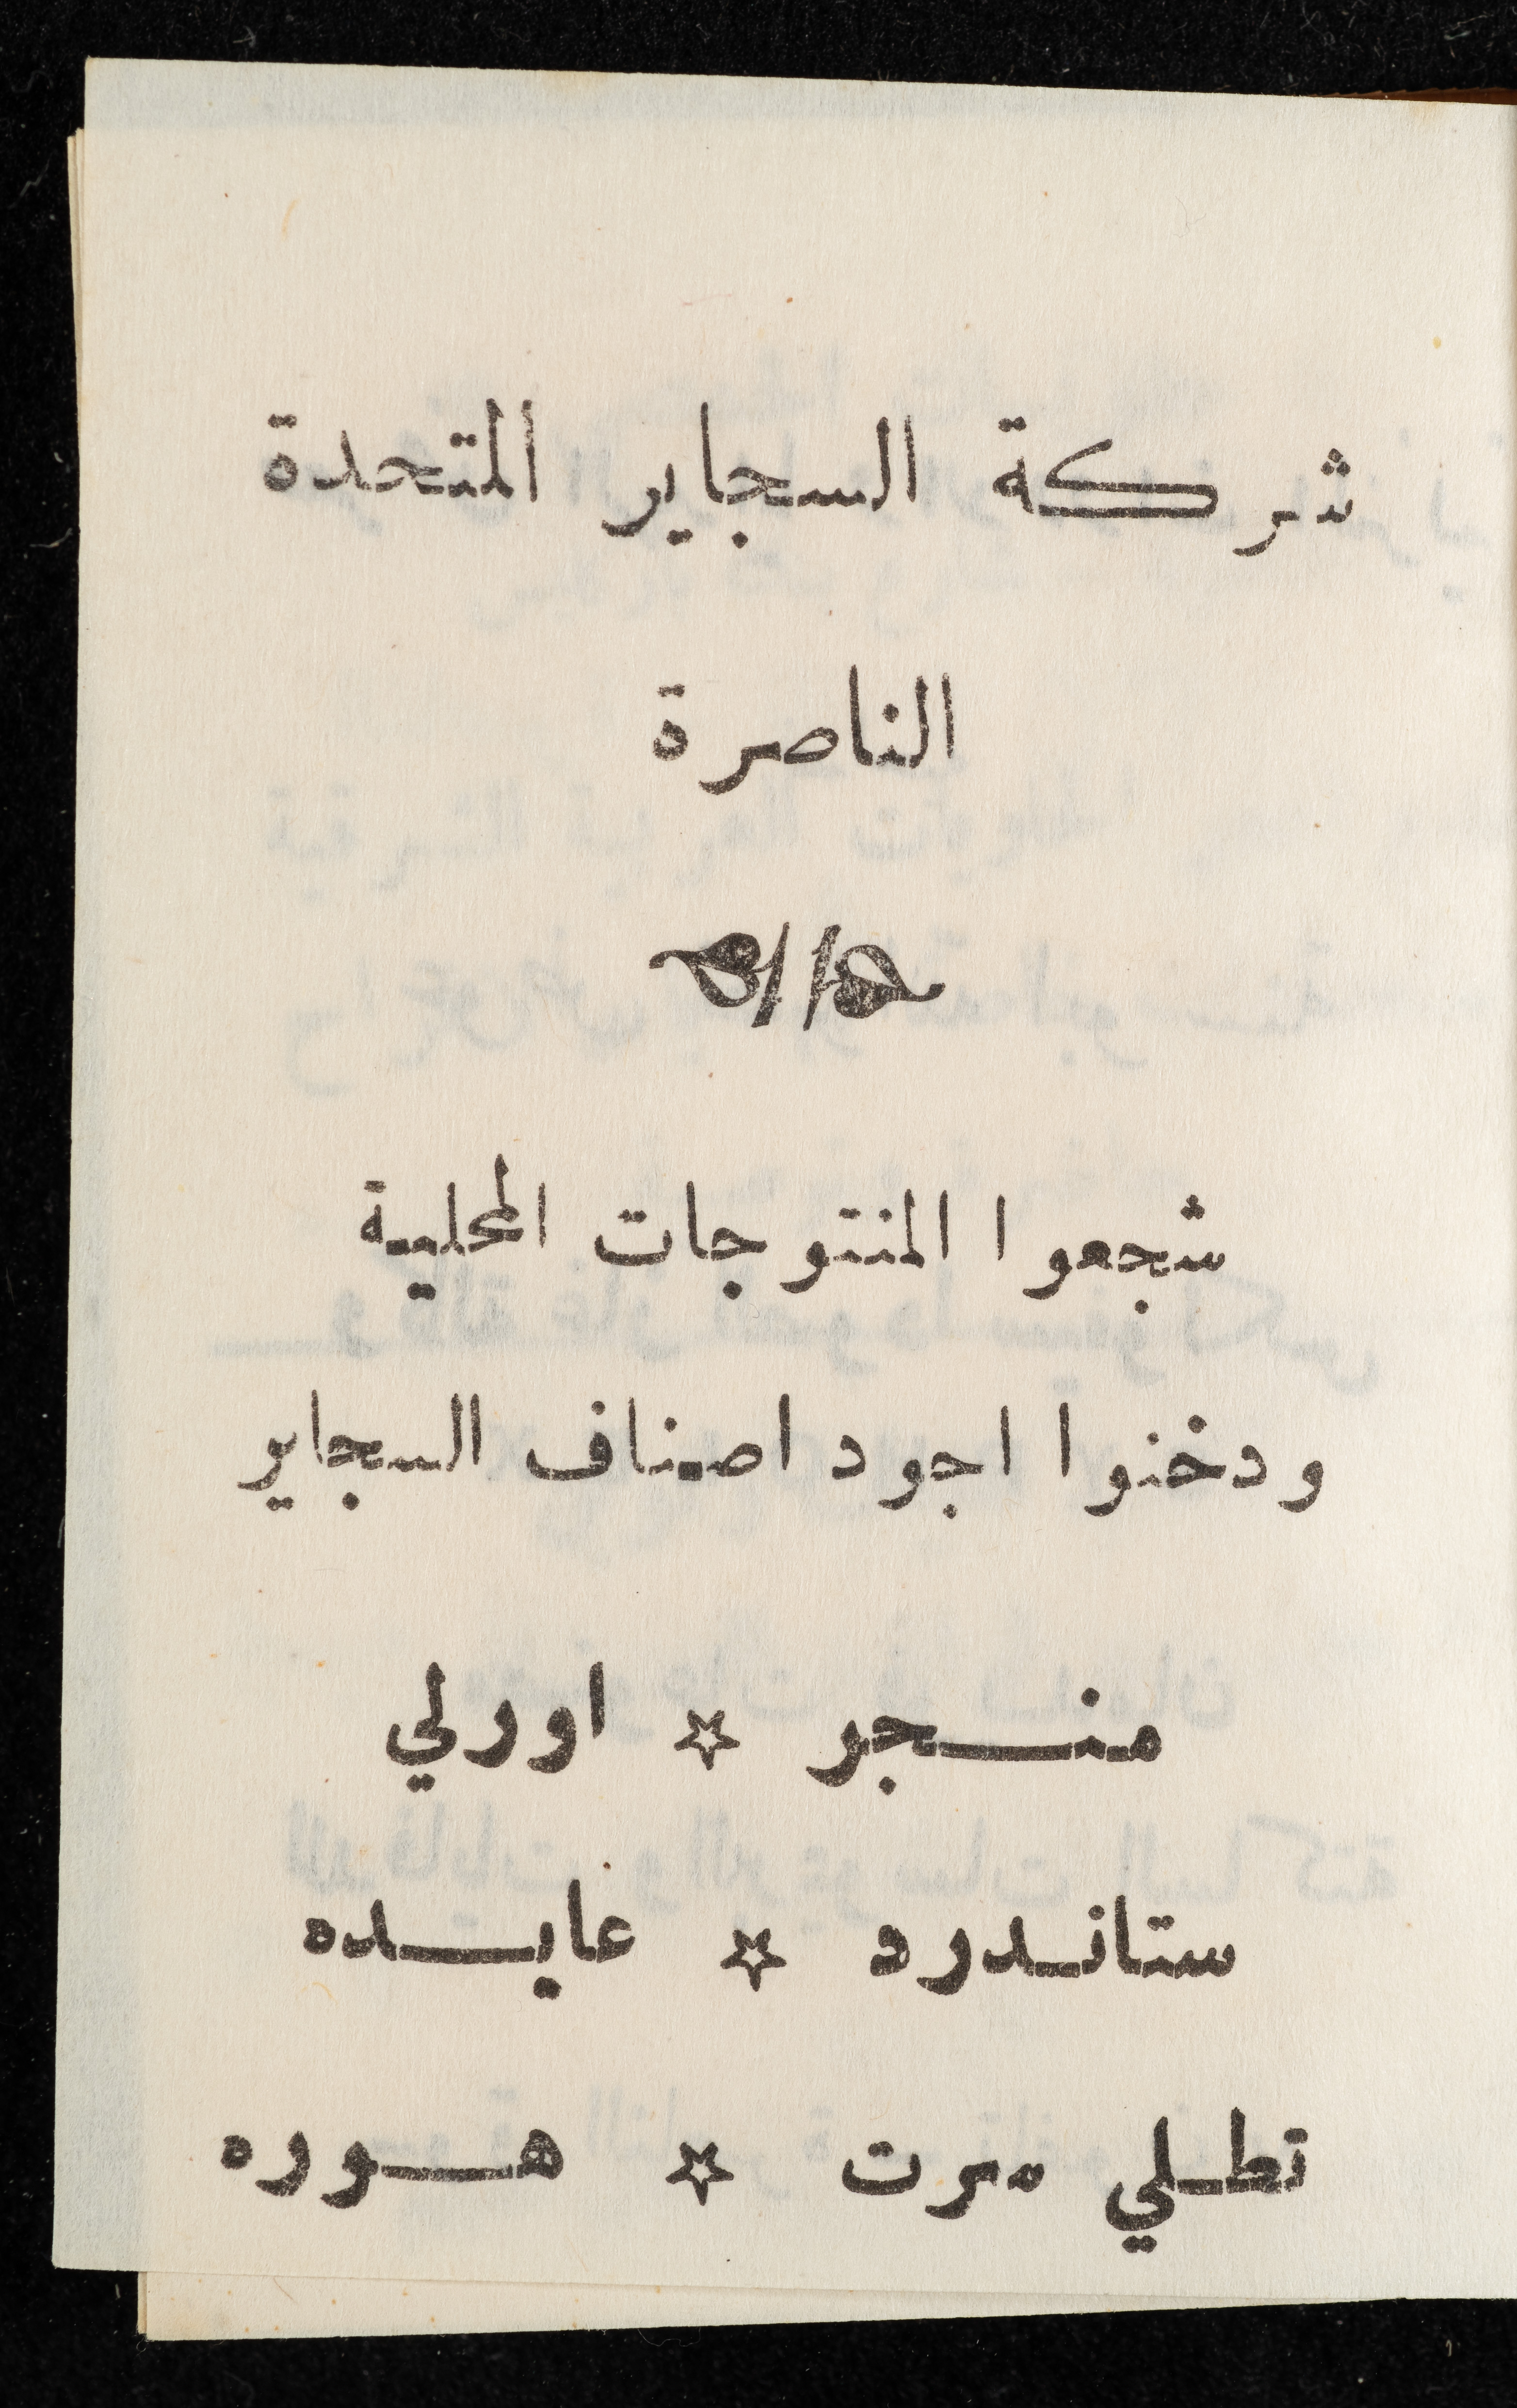 شركة السجاير المتحدة
الناصرة
شجعوا المنتوجات المحلية
ودخنوا اجود اصناف السجاير
منجر ☆ اورلي
ستاندرد ☆ عابده
تطلي مرت ☆ هوره